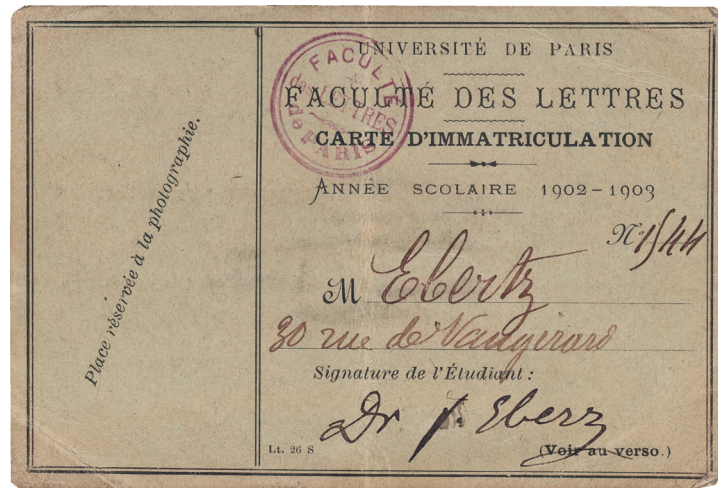 Place réservée à la photographie.
FACULTÉ
DES LETTRES
de PARIS
UNIVERSITÉ DE PARIS
FACULTÉ DES LETTRES
CARTE D'IMMATRICULATION
ANNÉE SCOLAIRE 1902-1903
N° 1544
M Ebertz
30 rue de Vaugirard
Signature de l'Étudiant :
Dr J. Eberz
Lt. 26 S
(Voir au verso.)